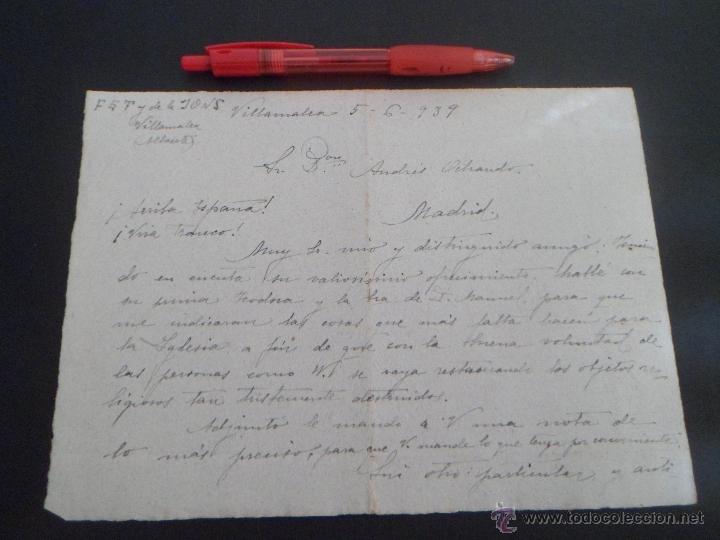 F E T y de las JONS Villamalea 5-6-939
Villamalea
(Albacete)
Sr. Don Andrés Ochando.
¡Arriba España! Madrid.
¡Viva Franco!
Muy Sr. mio y distinguido amigo: Tenien
do en cuenta su valiosisimo ofrecimiento, hablé con
su prima Teodora y la Sra de D. Manuel, para que
me indicaran las cosas que más falta hacen para
la Iglesia, a fin de que con la buena voluntad de
las personas como V. se vaya restaurando los objetos re-
ligiosos tan tristemente destruidos.
Adjunto le mando a V una nota de
lo más preciso, para que V. mande lo que tenga por conveniente.
Sin otro particular, y anti
www.todocoleccion.net